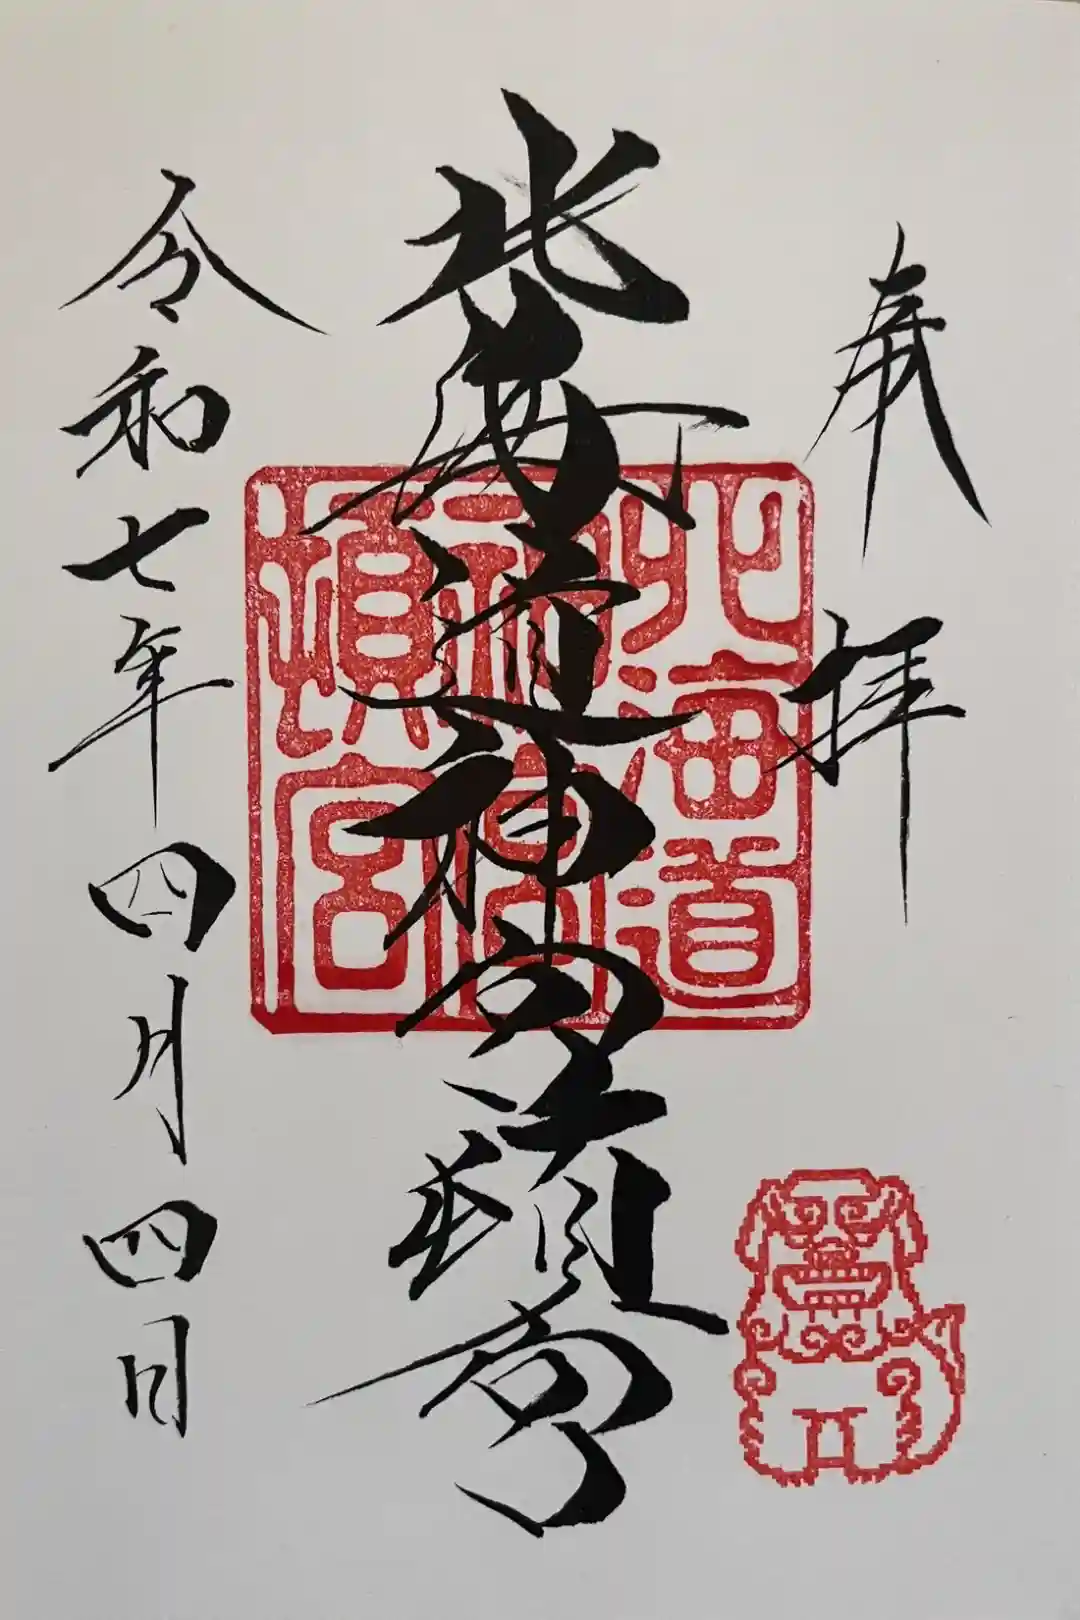 奉拝
北海道神宮頓宮
北海道
神宮
頓宮
令和七年四月四日